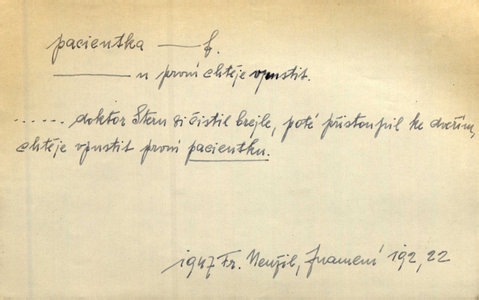 pacientka — f.
——— u první chtěje vpustit.
...... doktor Stern si čistil brejle, poté přistoupil ke dveřím,
chtěje vpustit první pacientku.
1947 Fr. Neužil, Znamení 192, 22